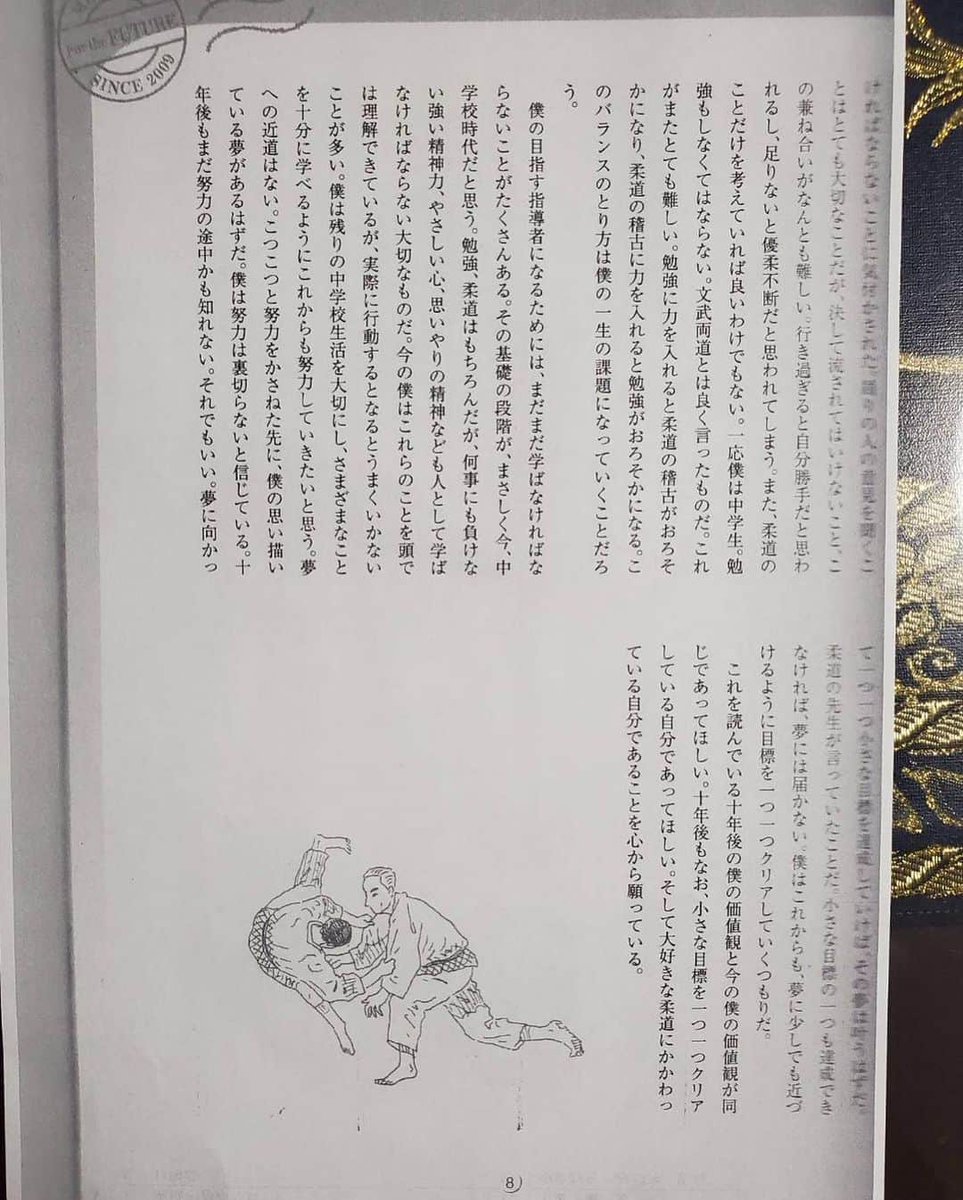 For the FUTURE
SINCE 2009
ければならないことに気付かされた。周りの人の意見を聞くこ
とはとても大切なことだが、決して流されてはいけないこと、こ
の兼ね合いがなんとも難しい。行き過ぎると自分勝手だと思わ
れるし、足りないと優柔不断だと思われてしまう。また、柔道の
ことだけを考えていれば良いわけでもない。一応僕は中学生。勉
強もしなくてはならない。文武両道とは良く言ったものだ。これ
がまたとても難しい。勉強に力を入れると柔道の稽古がおろそ
かになり、柔道の稽古に力を入れると勉強がおろそかになる。こ
のバランスのとり方は僕の一生の課題になっていくことだろ
う。
僕の目指す指導者になるためには、まだまだ学ばなければな
らないことがたくさんある。その基礎の段階が、まさしく今、中
学校時代だと思う。勉強、柔道はもちろんだが、何事にも負けな
い強い精神力、やさしい心、思いやりの精神なども人として学ば
なければならない大切なものだ。今の僕はこれらのことを頭で
は理解できているが、実際に行動するとなるとうまくいかない
ことが多い。僕は残りの中学校生活を大切にし、さまざまなこと
を十分に学べるようにこれからも努力していきたいと思う。夢
への近道はない。こつこつと努力をかさねた先に、僕の思い描い
ている夢があるはずだ。僕は努力は裏切らないと信じている。十
年後もまだ努力の途中かも知れない。それでもいい。夢に向かっ
て一つ一つ小さな目標を達成していけば、その夢は叶うはずだ。
柔道の先生が言っていたことだ。小さな目標の一つも達成でき
なければ、夢には届かない。僕はこれからも、夢に少しでも近づ
けるように目標を一つ一つクリアしていくつもりだ。
これを読んでいる十年後の僕の価値観と今の僕の価値観が同
じであってほしい。十年後もなお、小さな目標を一つ一つクリア
している自分であってほしい。そして大好きな柔道にかかわっ
ている自分であることを心から願っている。
8